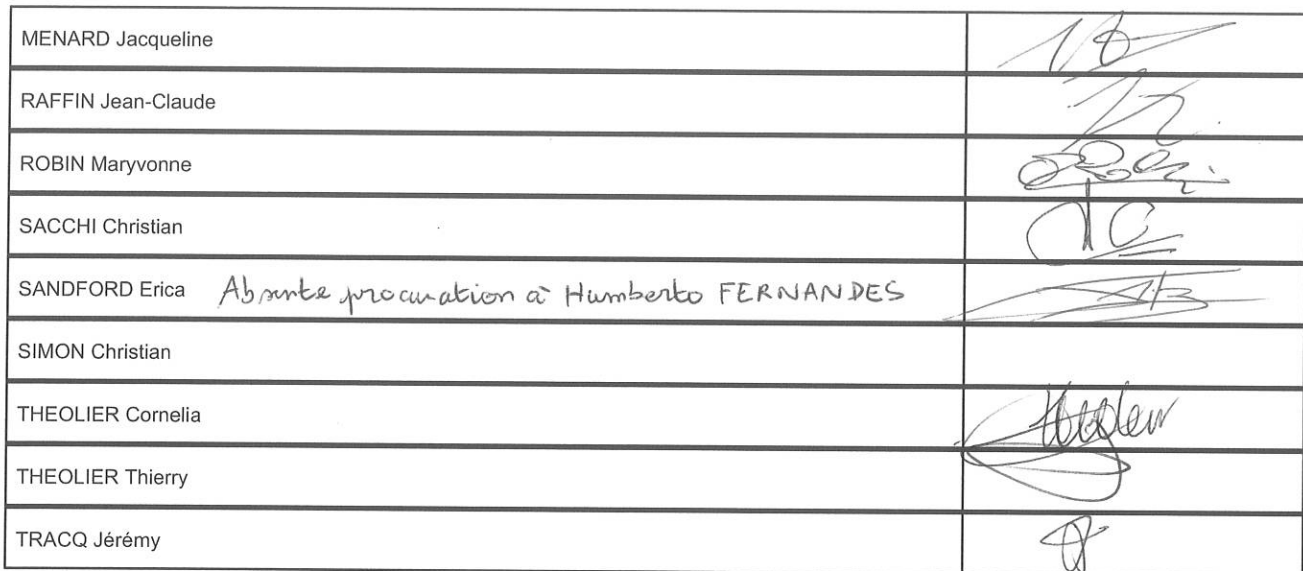 MENARD Jacqueline
RAFFIN Jean-Claude
ROBIN Maryvonne
SACCHI Christian
SANDFORD Erica Absente procuration à Humberto FERNANDES
SIMON Christian
THEOLIER Cornelia
THEOLIER Thierry
TRACQ Jérémy